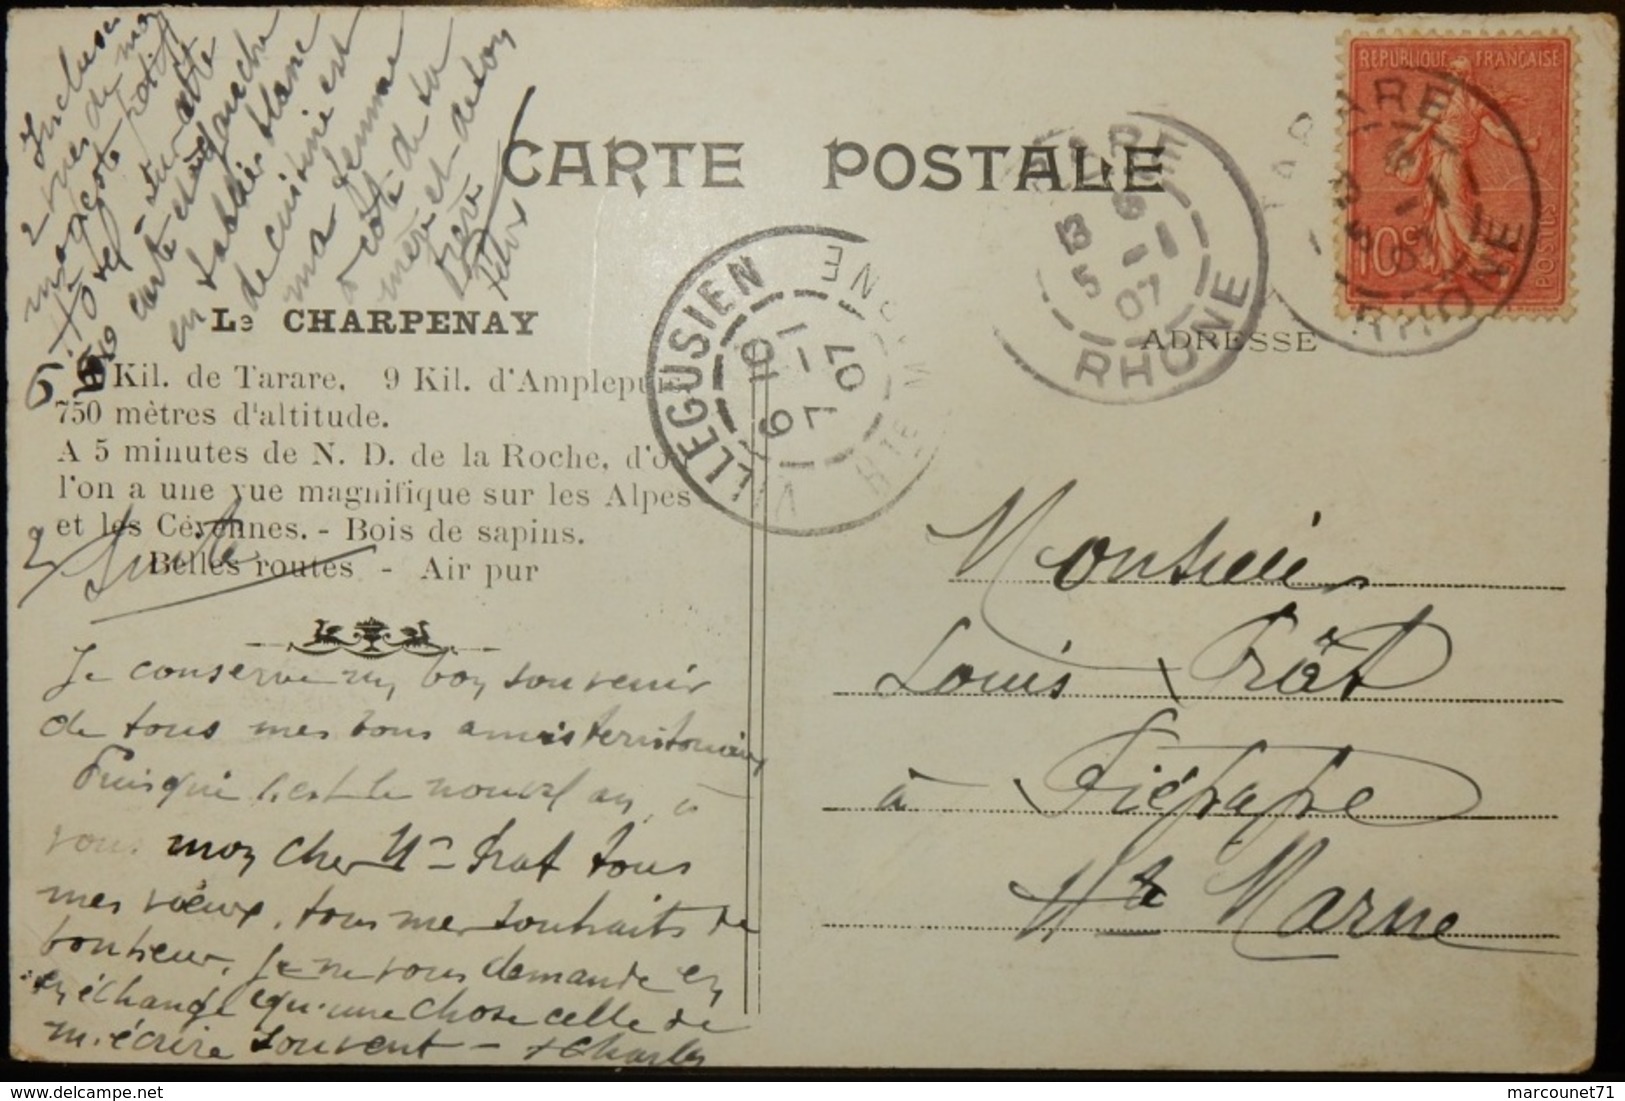 Incluses
2 vues de mon
modeste petit
Hôtel - sur cette
carte à gauche
en tablier blanc
de cuisine est
ma femme
à côté de sa
mère et de son
frère
CARTE POSTALE
RÉPUBLIQUE FRANÇAISE
10c
POSTES
TARARE
13 5
6 -1
07
RHONE
TARARE
RHONE
VILLEGUSIEN
10 -1
07
HTE MARNE
Le CHARPENAY
6 Kil. de Tarare. 9 Kil. d'Amplepuis
750 mètres d'altitude.
A 5 minutes de N. D. de la Roche, d'où
l'on a une vue magnifique sur les Alpes
et les Cévennes. - Bois de sapins.
Belles routes - Air pur
2 Suite
ADRESSE
Je conserve un bon souvenir
de tous mes bons amis territoriaux
Puisque c'est le nouvel an, à
vous mon cher Mr Prat tous
mes vœux, tous mes souhaits de
bonheur. Je ne vous demande en
échange qu'une chose celle de
m'écrire souvent - Charles
Monsieur
Louis Prât
à Piépape
Hte Marne
delcampe.net
marcounet71